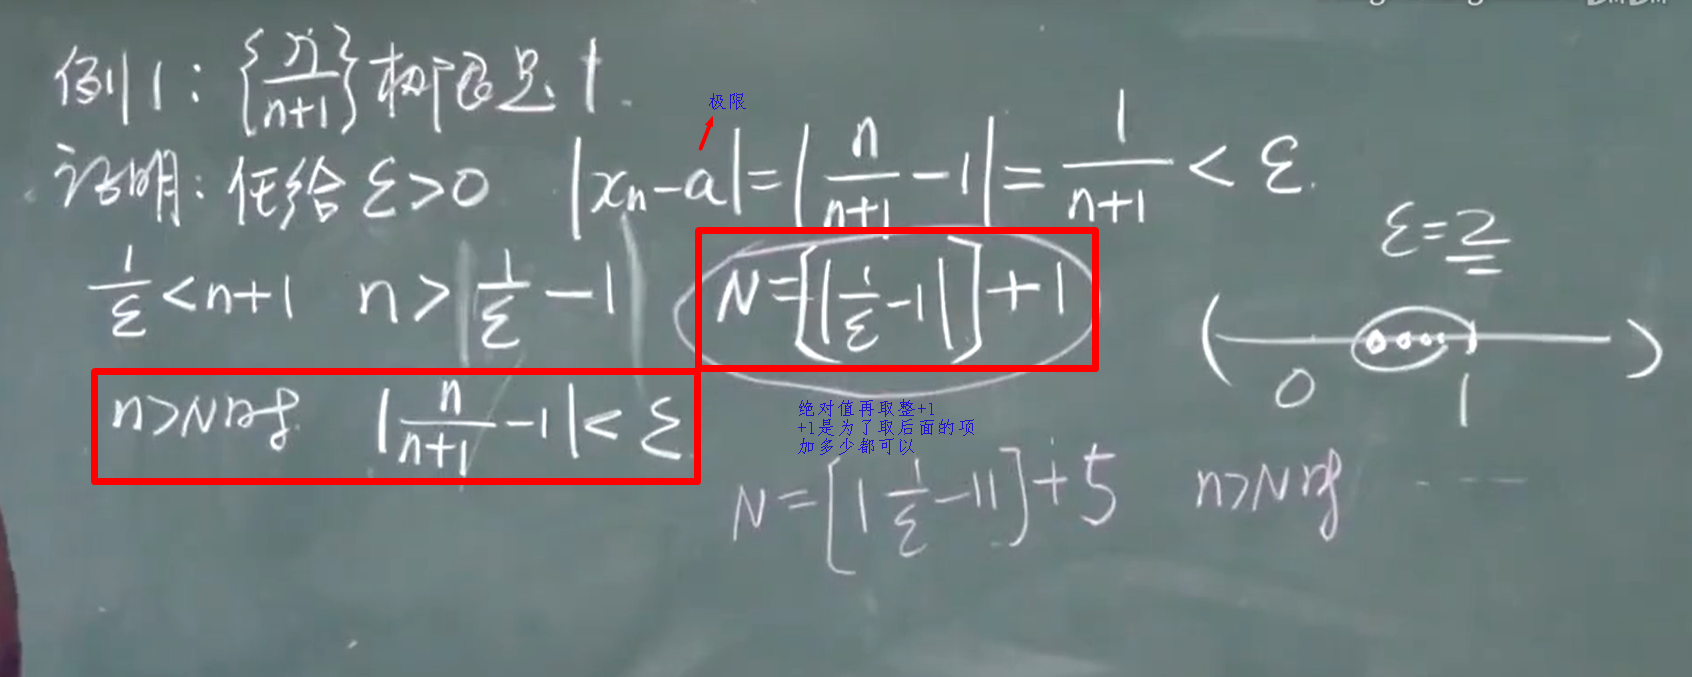 例1: {n/(n+1)} 极限是1.
极限
证明: 任给 ε>0 |xn-a|=|n/(n+1)-1|=1/(n+1)<ε.
ε=2
1/ε<n+1 n>|1/ε-1| N=[|1/ε-1|]+1
0 1
n>N时 |n/(n+1)-1|<ε
绝对值再取整+1
+1是为了取后面的项
加多少都可以
N=[|1/ε-1|]+5 n>N时 -----